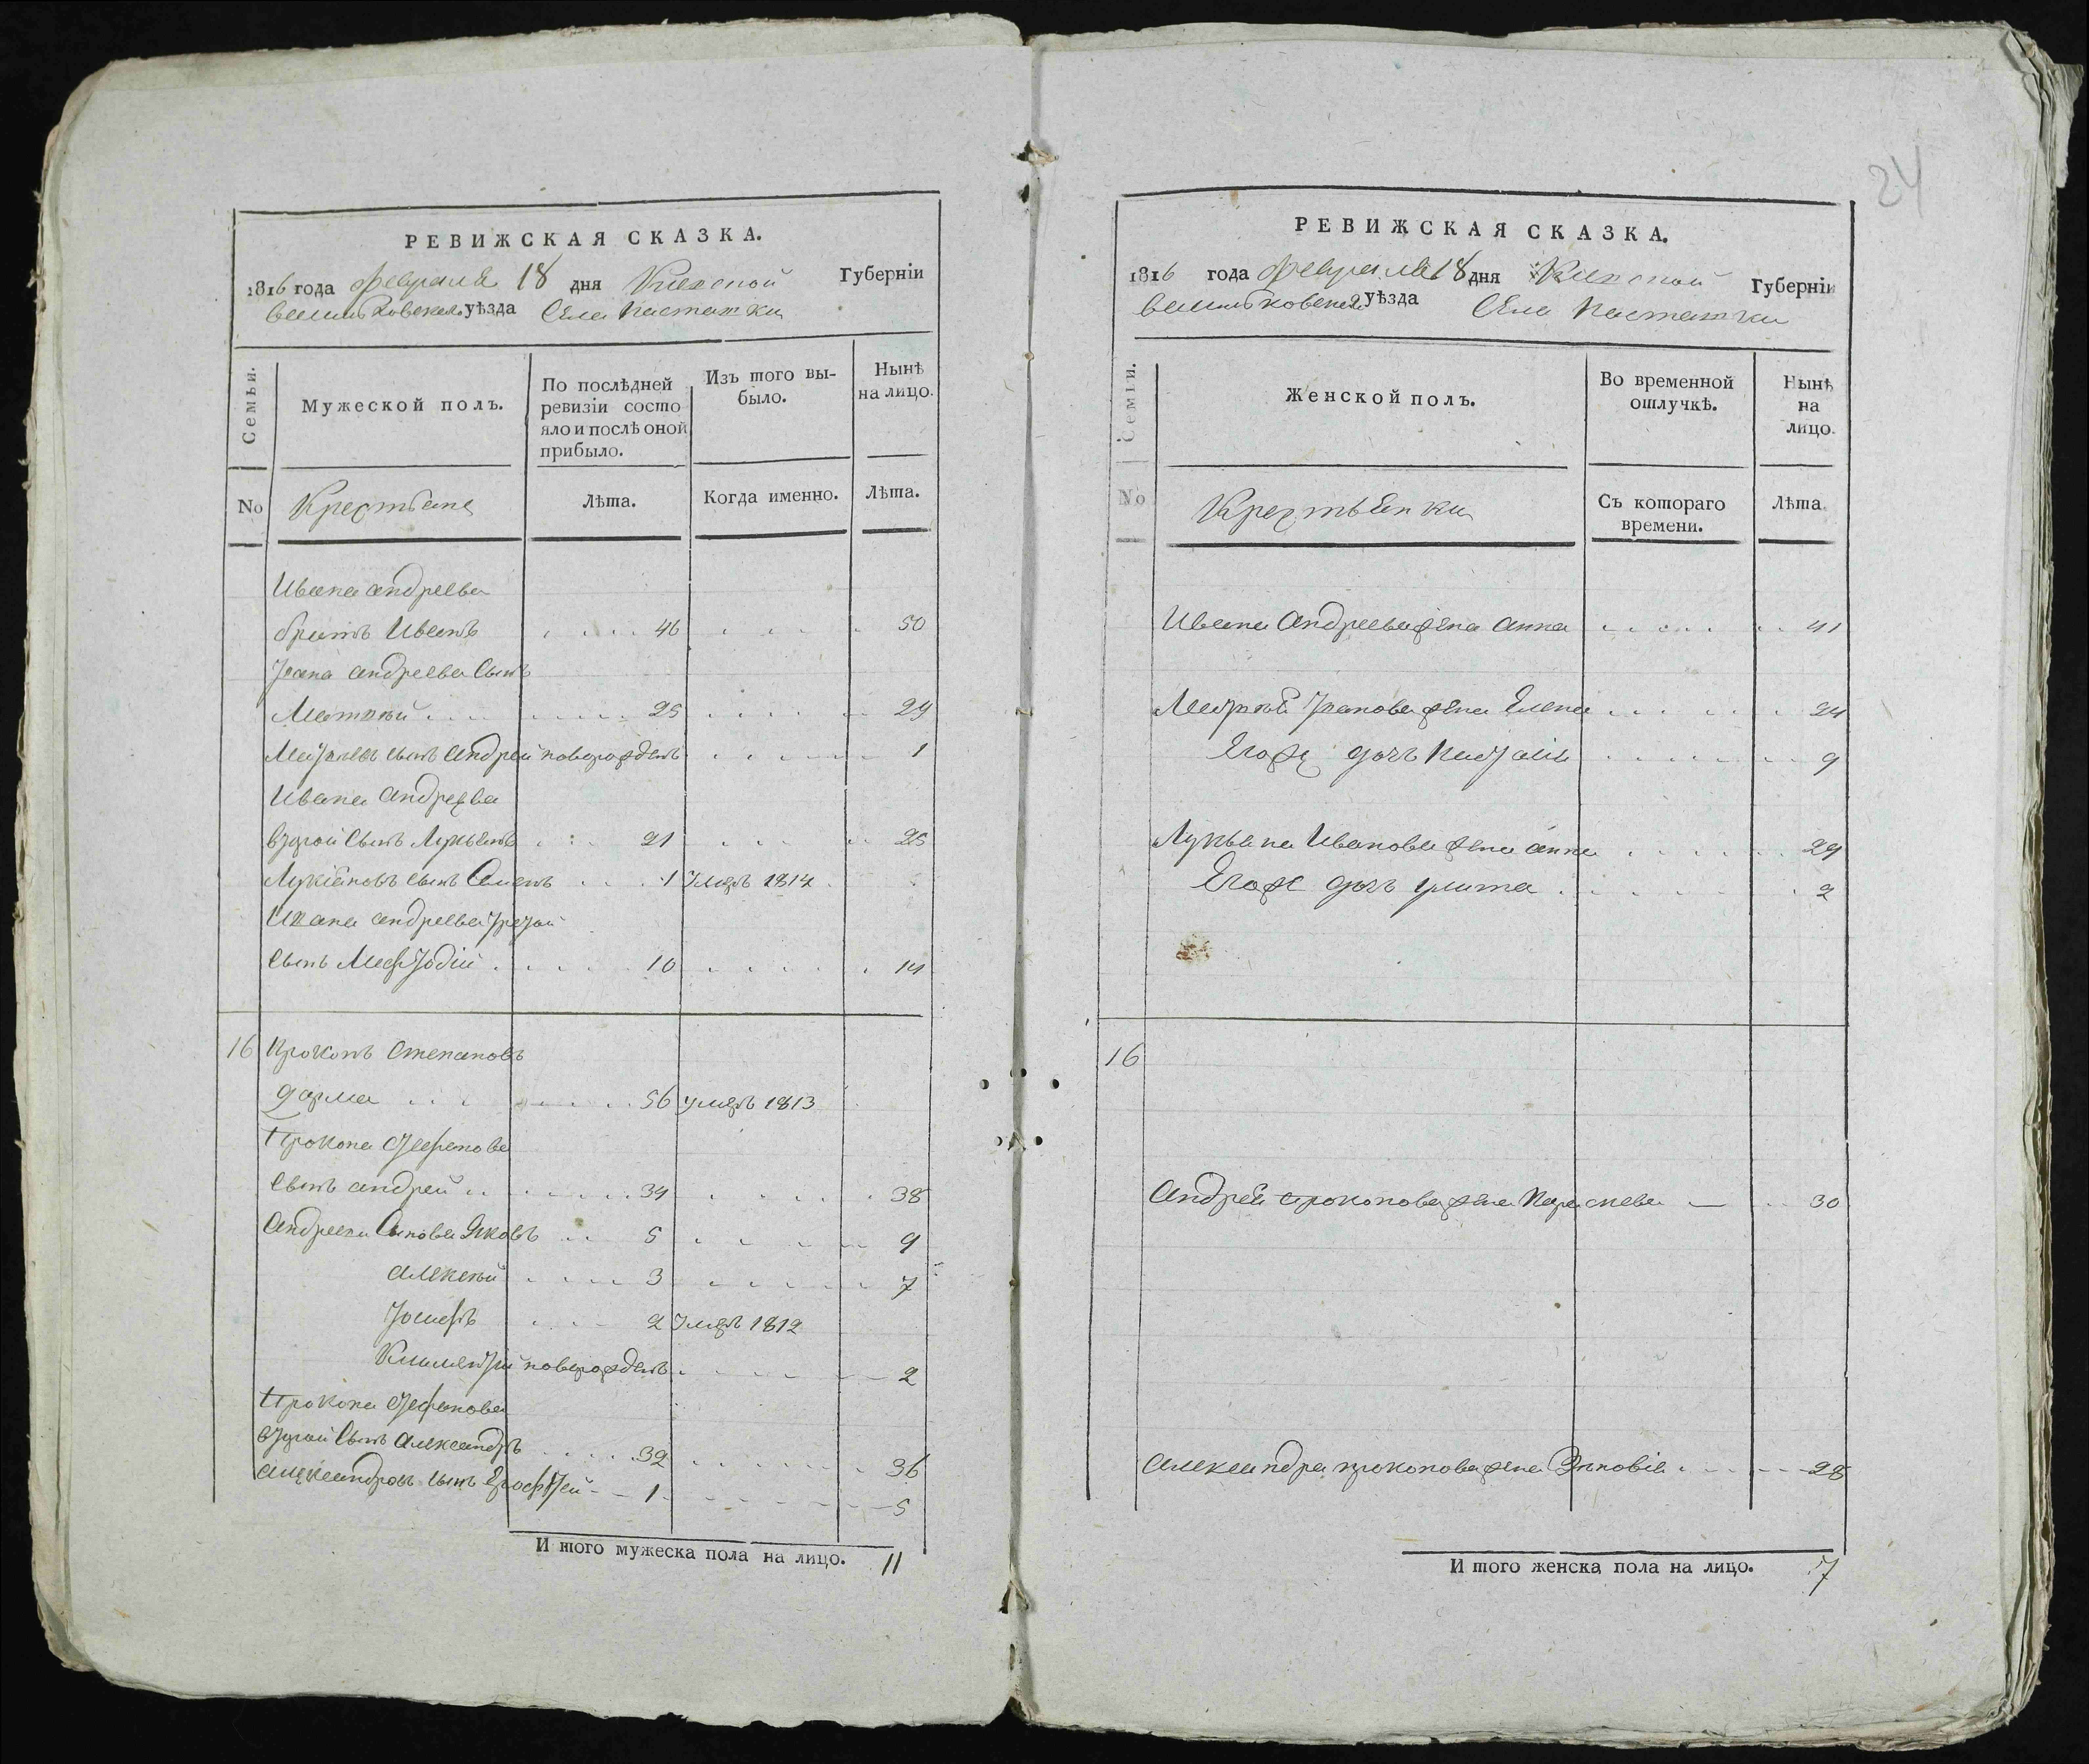 24
РЕВИЖСКАЯ СКАЗКА.
1816 года Февраля 18 дня Киевской Губерніи
васильковскаго уѣзда Села Пастатки
Семьи.
Мужеской полъ.
По послѣдней
ревизіи состо
яло и послѣ оной
прибыло.
Изъ того вы-
было.
Нынѣ
на лицо.
No
Крестьяне
Лѣта.
Когда именно.
Лѣта.
Ивана андреева
братъ Иванъ 46 50
Ивана андреева Сынъ
Матвѣй 25 29
Матвѣевъ сынъ Андрей новорожденъ 1
Ивана андреева
второй Сынъ Лукьянъ 21 25
Лукіяновъ сынъ Семенъ 1 Умеръ 1814
Ивана андреева третой
Сынъ Мефтодій 10 14
16 Прокопъ Степановъ
56 умеръ 1813
Прокопа Стефанова
Сынъ андрей 34 38
Андреевы Сыновья Яковъ 5 9
Алексѣй 3 7
Іосифъ 2 Умеръ 1812
Климентій новорожденъ 2
Прокопа Стефанова
второй Сынъ Александръ 32 36
Александровъ сынъ Ерофтей 1 5
И того мужеска пола на лицо. 11
РЕВИЖСКАЯ СКАЗКА.
1816 года Февраля 18 дня Киевской Губерніи
васильковскаго уѣзда Села Пастатки
Семьи.
Женской полъ.
Во временной
отлучкѣ.
Нынѣ
на
лицо.
No
Крестьянки
Съ котораго
времени.
Лѣта.
Ивана Андреева жена Анна 41
Матвѣя Иванова жена Елена 24
Егоже дочь Наталія 9
Лукьяна Иванова жена анна 24
Егоже дочь улита 2
16
Андрея прокопова жена Параскева 30
Александра прокопова жена Зѣновія 28
И того женска пола на лицо. 7